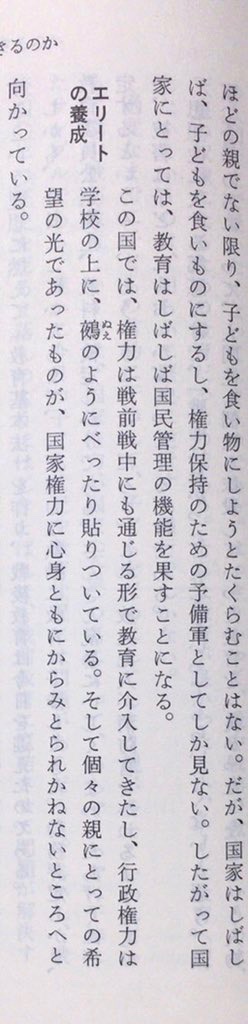 きるのか
ほどの親でない限り、子どもを食い物にしようとたくらむことはない。だが、国家はしばし
ば、子どもを食いものにするし、権力保持のための予備軍としてしか見ない。したがって国
家にとっては、教育はしばしば国民管理の機能を果すことになる。
この国では、権力は戦前戦中にも通じる形で教育に介入してきたし、行政権力は
エリート
の養成
学校の上に、鵺のようにべったり貼りついている。そして個々の親にとっての希
ぬえ
望の光であったものが、国家権力に心身ともにからみとられかねないところへと
向かっている。